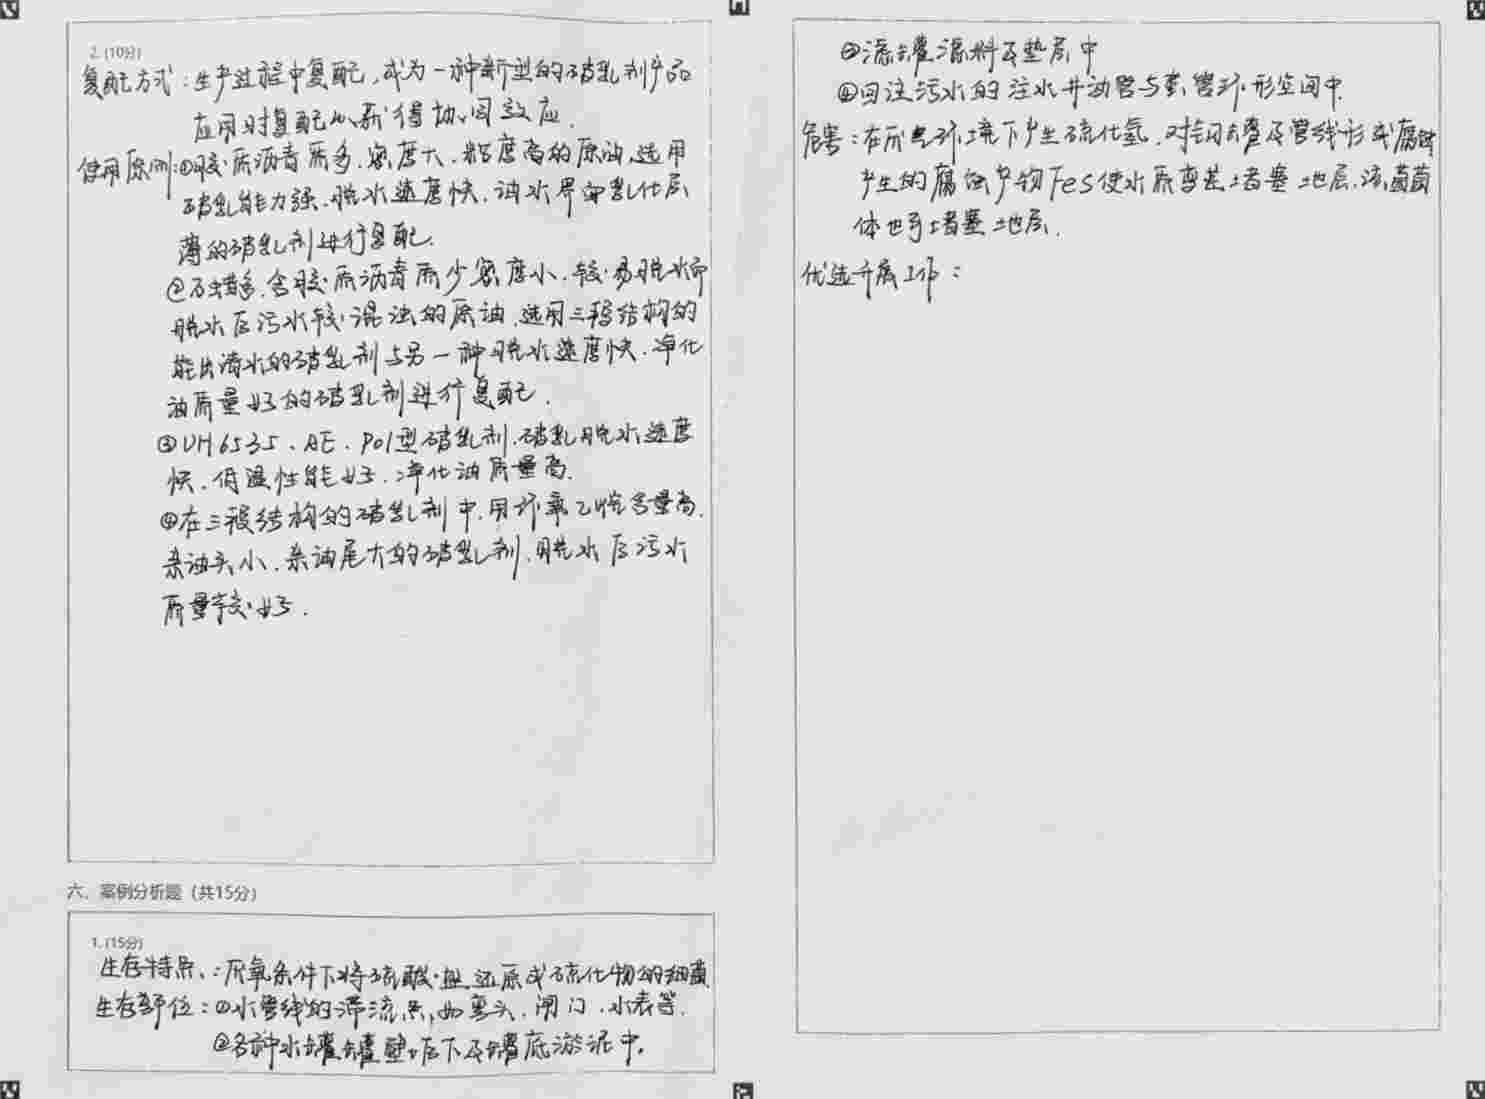 2. (10分)
复配方式：生产过程中复配，成为一种新型的破乳剂产品
应用时复配以获得协同效应.
使用原则：①胶质沥青质多、密度大、粘度高的原油，选用
破乳能力强、脱水速度快、油水界面乳化层
薄的破乳剂进行复配.
②石蜡多、含胶质沥青质少密度小、较易脱水而
脱水后污水较混浊的原油，选用三段结构的
能出清水的破乳剂与另一种脱水速度快、净化
油质量好的破乳剂进行复配.
③UH6535、AE、POI型破乳剂，破乳脱水速度
快、低温性能好、净化油质量高.
④在三段结构的破乳剂中，用环氧乙烷含量高、
亲油头小、亲油尾大的破乳剂，脱水后污水
质量较好.
六、案例分析题（共15分）
1. (15分)
生存特点：厌氧条件下将硫酸盐还原成硫化物的细菌
生存部位：①水管线的滞流点，如弯头、闸门、水表等.
②各种水罐罐壁垢下及罐底淤泥中.
③滤罐滤料及垫层中
④回注污水的注水井油管与套管环形空间中.
危害：在厌氧环境下产生硫化氢，对钢罐及管线形成腐蚀
产生的腐蚀产物FeS使水质变差堵塞地层，该菌菌
体也可堵塞地层.
优选开展工作：